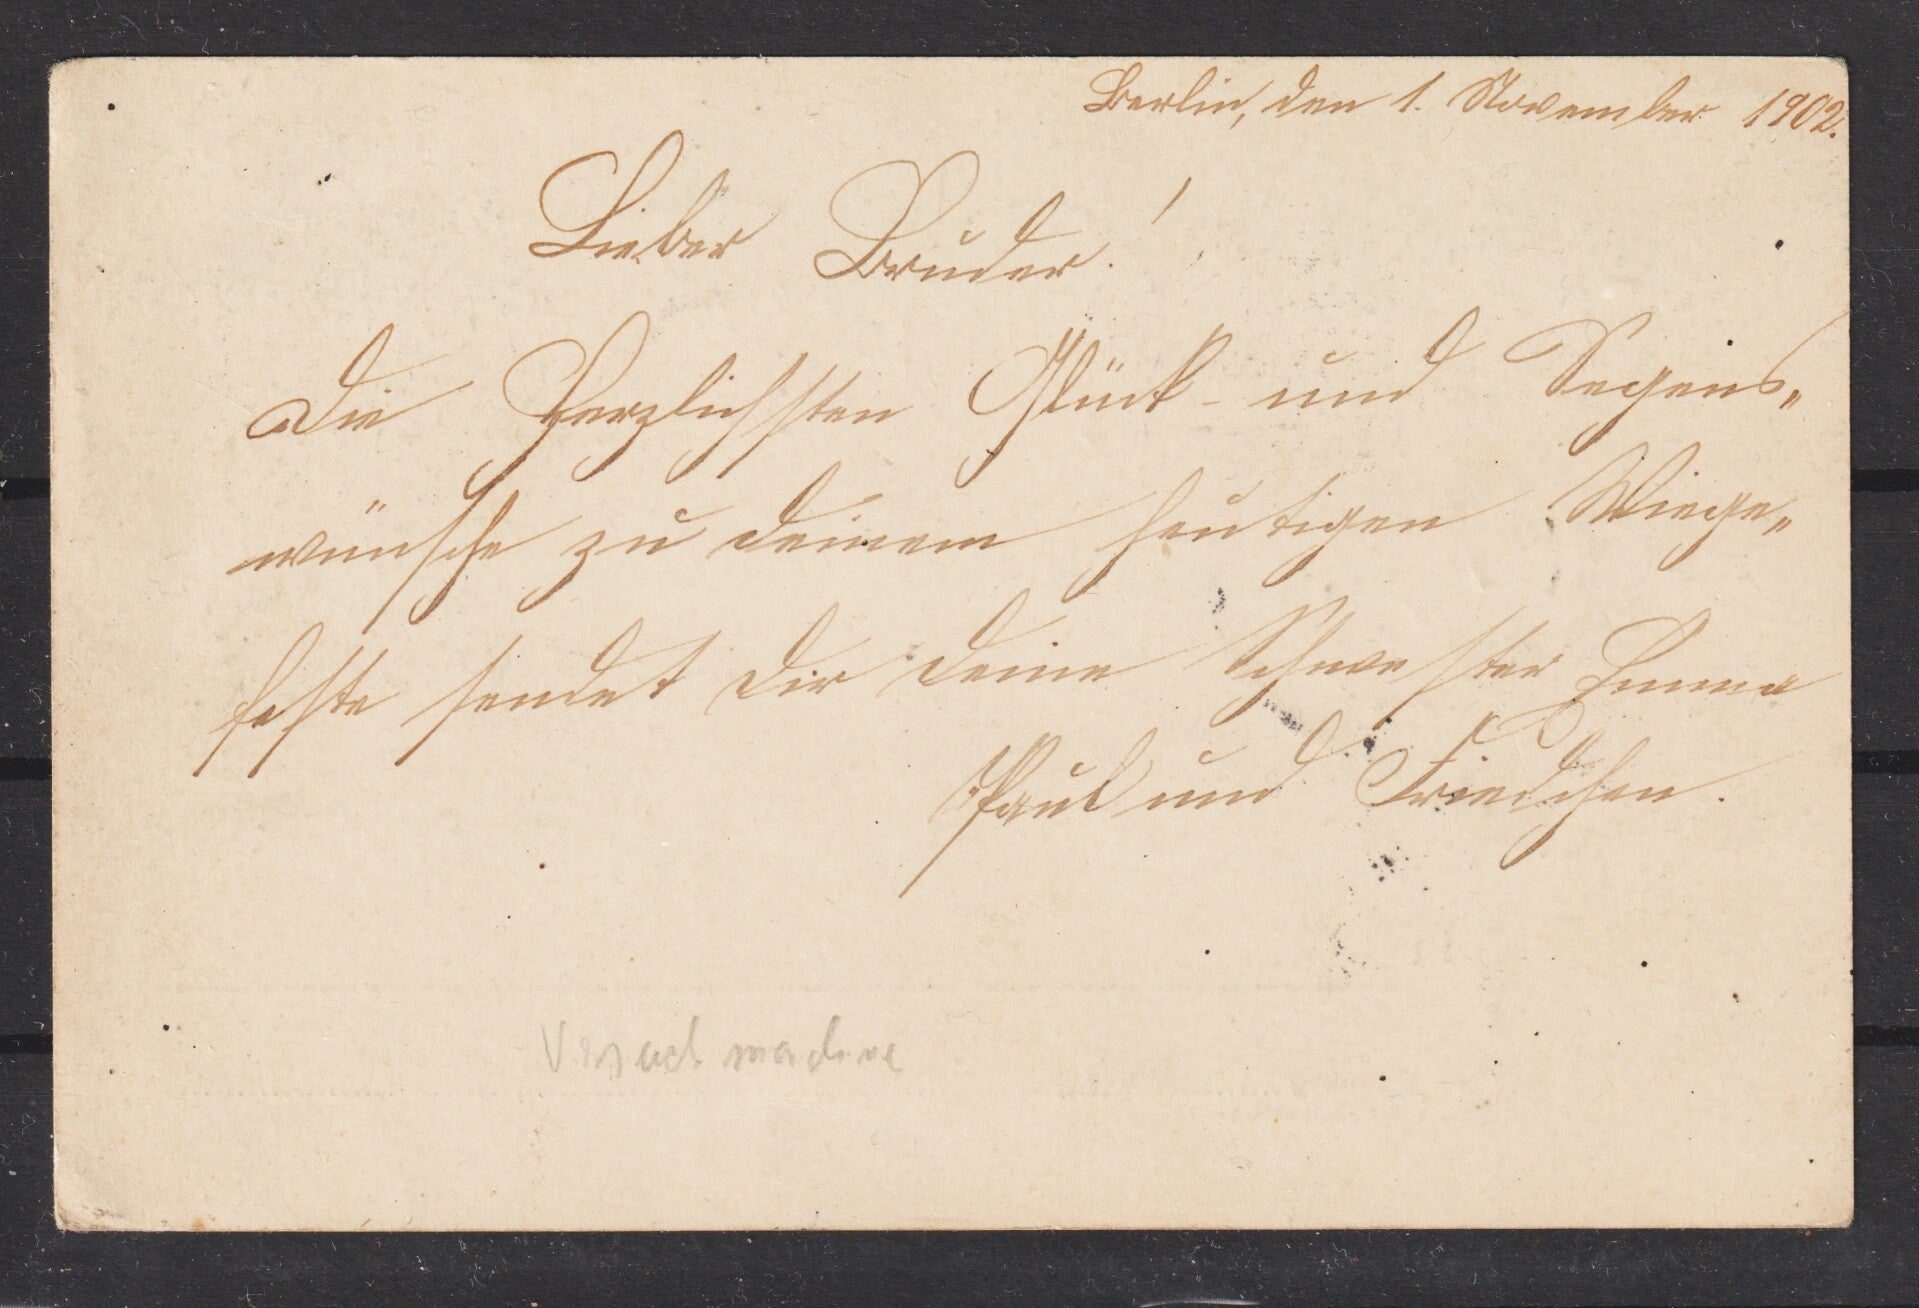 Berlin, den 1. November 1902.
Lieber Bruder!
Die herzlichsten Glück- und Segens„
wünsche zu deinem heutigen Wiege„
feste sendet dir deine Schwester Emma
Paul und Friedchen.